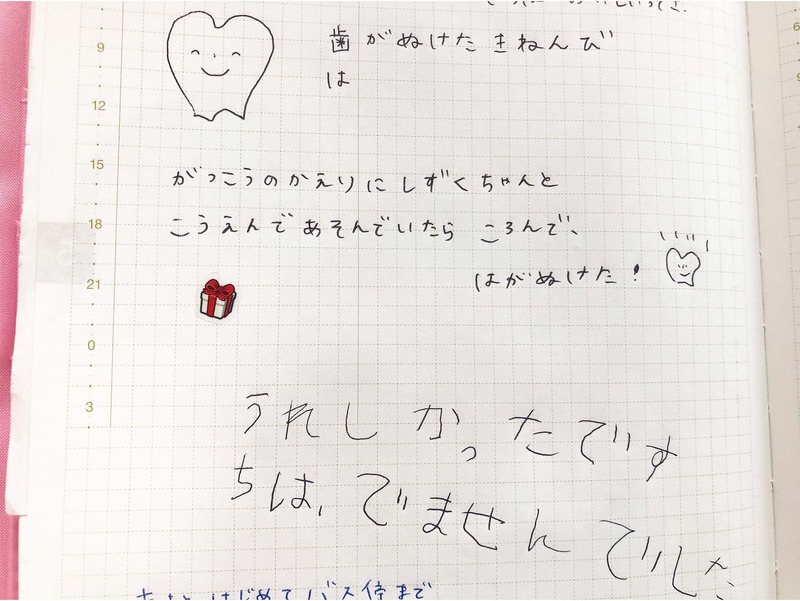 9
歯がぬけたきねんび
は
12
15
がっこうのかえりにしずくちゃんと
18
こうえんであそんでいたら ころんで、
はがぬけた!
21
0
3
うれしかったです
ちは、でませんでした
はじめてバス停まで